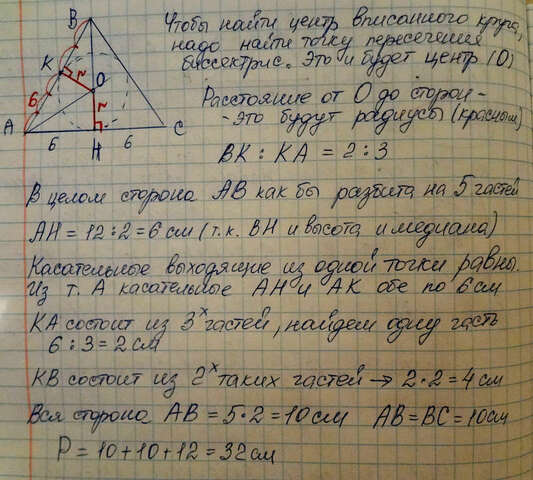 Чтобы найти центр вписанного круга,
надо найти точку пересечения
биссектрис. Это и будет центр (О)
Расстояние от О до сторон -
- это будут радиусы (красным)
ВК : КА = 2 : 3
В целом сторона АВ как бы разбита на 5 частей
АН = 12 : 2 = 6 см (т.к. ВН и высота и медиана)
Касательные выходящие из одной точки равны.
Из т. А касательные АН и АК обе по 6 см
КА состоит из 3х частей, найдем одну часть
6 : 3 = 2 см
КВ состоит из 2х таких частей → 2·2 = 4 см
Вся сторона АВ = 5·2 = 10 см АВ = ВС = 10 см
Р = 10 + 10 + 12 = 32 см
В
К
r
О
6
r
А
6
6
С
Н